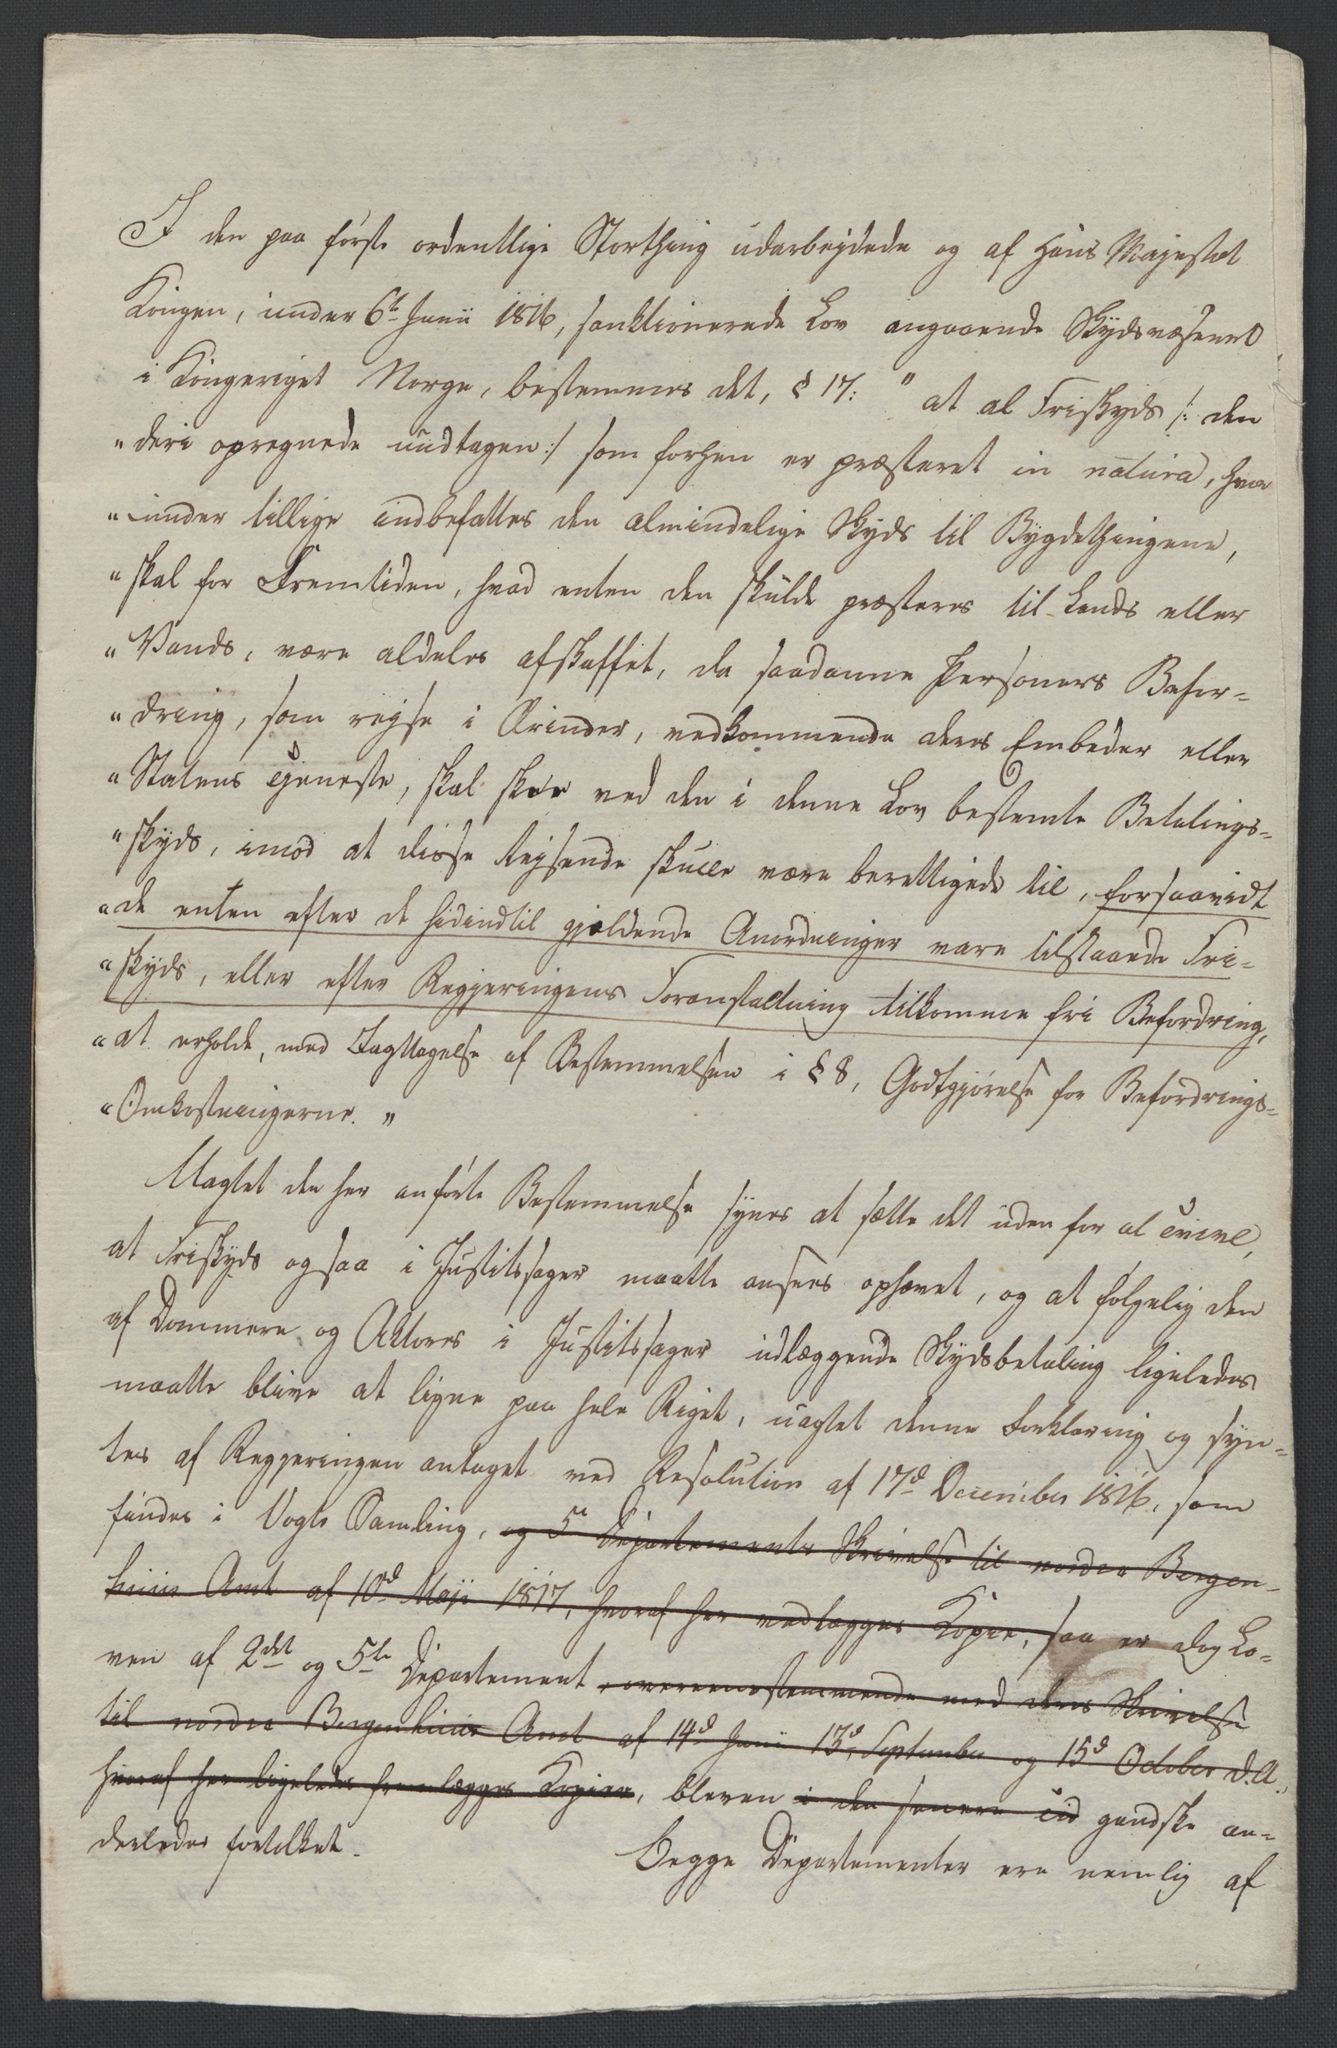 I den paa förste ordentlige Storthing udarbejdede og af Hans Majestæt
Kongen, under 6te Junii 1816, sanktionerede Lov angaaende Skydsvæsenet
i Kongeriget Norge, bestemmes det, § 17: " at al Friskyds /: den
" deri opregnede undtagen :/ som forhen er præsteret in natura, hvor
" under tillige indbefattes den almindelige Skyds til Bygdethingene,
" skal for Fremtiden, hvad enten den skulde præsteres til Lands eller
" Vands, være aldeles afskaffet, da saadanne Personers Befor-
" dring, som rejse i Ærinder, vedkommende deres Embeder eller
" Statens Tjeneste, skal skee ved den i denne Lov bestemte Betalings-
" skyds, imod at disse Rejsende skulle være berettigede til, forsaavidt
" de enten efter de hidindtil gjældende Anordninger vare tilstaaede Fri-
" skyds, eller efter Regjeringens Foranstaltning tilkomme fri Befordring,
" at erholde, med Iagttagelse af Bestemmelsen i § 8, Godtgjörelse for Befordrings-
" Omkostningerne. "
Uagtet den her anförte Bestemmelse synes at sætte det uden for al Tvivl,
at Friskyds ogsaa i Justitssager maatte ansees ophævet, og at fölgelig den
af Dommere og Aktores i Justitssager udlæggende Skydsbetaling ligeledes
maatte blive at ligne paa hele Riget, uagtet denne Forklaring og syn-
tes af Regjeringen antaget ved Resolution af 17d December 1816, som
findes i Vogts Samling, og 5te Departements Skrivelse til nordre Bergen-
huus Amt af 10d Maji 1817, hvoraf her vedlægges Kopie, saa er dog Lo-
ven af 2det og 5te Departement overeenstemmende med deres Skrivelse
til nordre Bergenhuus Amt af 14d Junii 13d September og 15d October d. A.,
hvoraf her ligeledes fremlægges Kopier, bleven i den senere Tid gandske an-
derledes fortolket.
Begge Departementer ere nemlig af